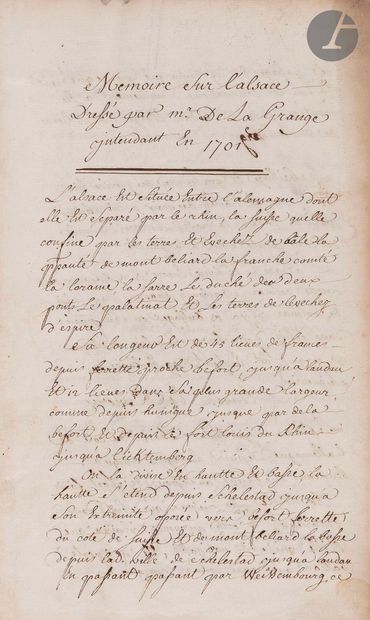 Memoire Sur l'alsace
Dressé par mr. De La Grange
jntendant En 1701
L'alsace Est située Entre l'alemagne dont
elle Est separé par le rhin, la suisse quelle
confine par les terres Et Evechez de bale la
ppauté de mont beliard la franche comté
la loraine la sarre Le duché des deux
ponts Le palatinat Et les terres de levechez
d'espire
Sa longeur Est de 45 lieues de france
depuis ferette proche befort jusqu'a landau
Et 12 lieues dans sa plus grande largeur
comme depuis hunigue jusque par dela
befort Et depuis le fort louis du Rhin
jusqu'a licktemberg
On la divise En hautte Et basse, la
hautte s'étend depuis schelestad jusqua
son Extremité oposée vers befort ferrette
du coté de suisse Et de mont beliard la basse
depuis lad. ville de schelestad jusqu'a landau
En passant passant par Weissembourg, ce